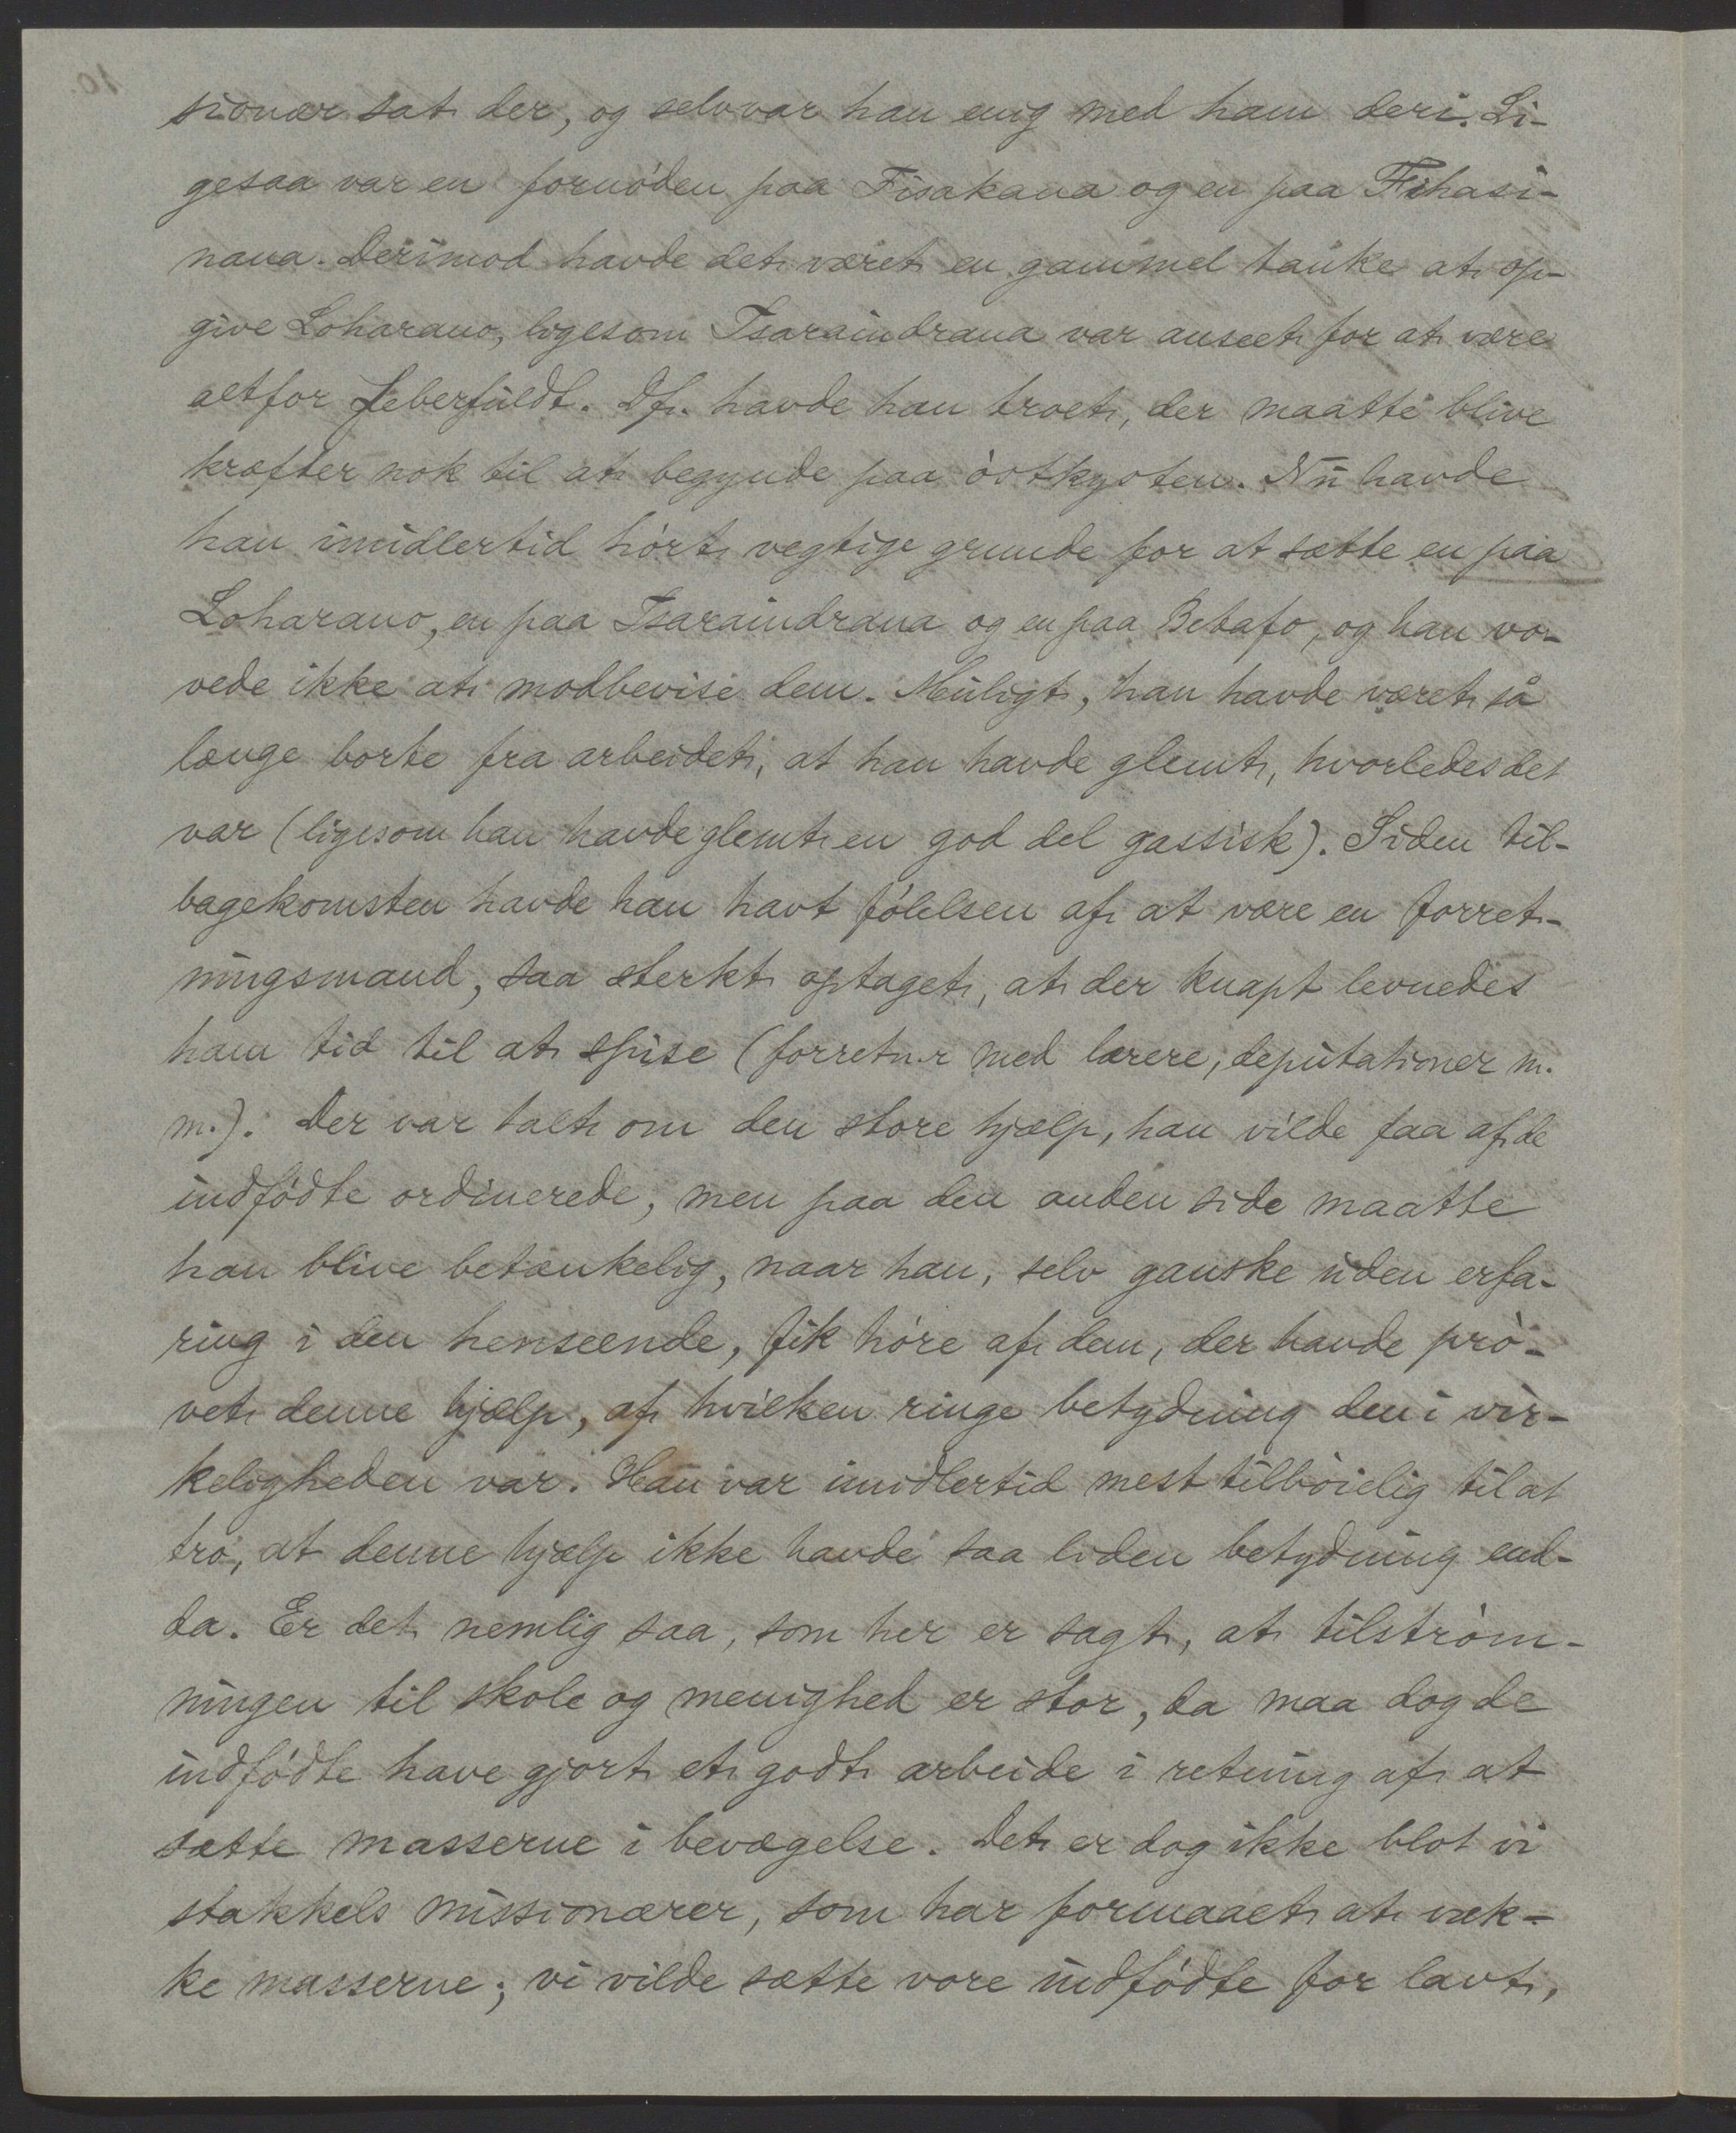 sionær sat der, og selv var han enig med ham deri. Li-
gesaa var en fornöden paa Fisakana og en paa Fihasi-
nana. Derimod havde det været en gammel tanke at op-
give Loharano, ligesom Tsaraindrana var anseet for at være
altfor feberfuldt. Df. havde han troet, der maatte blive
kræfter nok til at begynde paa östkysten. Nu havde
han imidlertid hört vegtige grunde for at sætte en paa
Loharano, en paa Tsaraindrana og en paa Betafo, og han vo-
vede ikke at modbevise dem. Muligt, han havde været så
længe borte fra arbeidet, at han havde glemt, hvorledes det
var (ligesom han havde glemt en god del gassisk). Siden til-
bagekomsten havde han havt fölelsen af at være en forret-
ningsmand, saa sterkt optaget, at der knapt levnedes
ham tid til at spise (forretn.r med lærere, deputationer m.
m.). Der var talt om den store hjælp, han vilde faa af de
indfödte ordinerede, men paa den anden side maatte
han blive betænkelig, naar han, selv ganske uden erfa-
ring i den henseende, fik höre af dem, der havde prö-
vet denne hjælp, af hvilken ringe betydning den i vir-
keligheden var. Han var imidlertid mest tilböielig til at
tro, at denne hjælp ikke havde saa liden betydning end-
da. Er det nemlig saa, som her er sagt, at tilström-
ningen til skole og menighed er stor, da maa dog de
indfödte have gjort et godt arbeide i retning af at
sætte masserne i bevægelse. Det er dog ikke blot vi
stakkels missionærer, som har formaaet at væk-
ke masserne; vi vilde sætte vore indfödte for lavt,